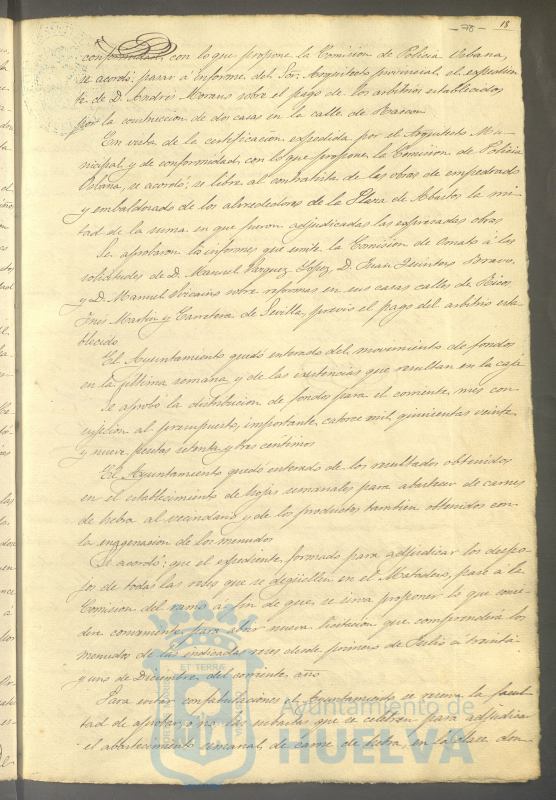 18
conformidad, con lo que propone la Comision de Policía Urbana,
se acordó: pasar á informe del Sor. Arquitecto provincial, el expedien-
te de D. Andrés Morano sobre el pago de los arbitrios establecidos
por la construccion de dos casas en la calle de Rascon
En vista de la certificacion espedida por el Arquitecto Mu-
nicipal, y de conformidad, con lo que propone la Comision de Policía
Urbana, se acordó: se libre al contratista de las obras de empedrado
y embaldosado de los alrededores de la Plaza de Abastos, la mi-
tad de la suma en que fueron adjudicadas las espresadas obras
Se aprobaron los informes que emite la Comision de Ornato á las
solicitudes de D. Manuel Vazquez Lopez, D. Juan Quintero
y D. Manuel sobre reformas en sus casas calles de Ricos
Fnes Martin y Carretera de Sevilla, previo el pago del arbitrio esta-
blecido
El Ayuntamiento quedó enterado del movimiento de fondos
en la última semana y de las existencias que resultan en la caja
Se aprobó la distribucion de fondos para el corriente mes con
sujecion al presupuesto, importante, catorce mil, quinientas veinte
y nueve pesetas setenta y tres centimos
El Ayuntamiento quedó enterado de los resultados obtenidos
en el establecimiento de hojas semanales para abastecer de carnes
de hebra al vecindario, y de los productos tambien obtenidos con
la enagenacion de los menudos
Se acordó: que el expediente, formado para adjudicar los despo-
jos de todas las reses que se degüellen en el Matadero, pase á la
Comision del ramo á fin de que, se sirva proponer lo que consi-
dere conveniente para abrir nueva licitacion que comprenderá los
menudos de las indicadas reses desde primero de Julio á treinta
y uno de Diciembre, del corriente, año
Para evitar confabulaciones el Ayuntamiento se reserva la facul-
tad de aprobar, ó no las subastas que se celebren para adjudicar
el abastecimiento semanal, de carne de hebra, en la plaza don-
ET TERRÆ
Ayuntamiento de
HUELVA